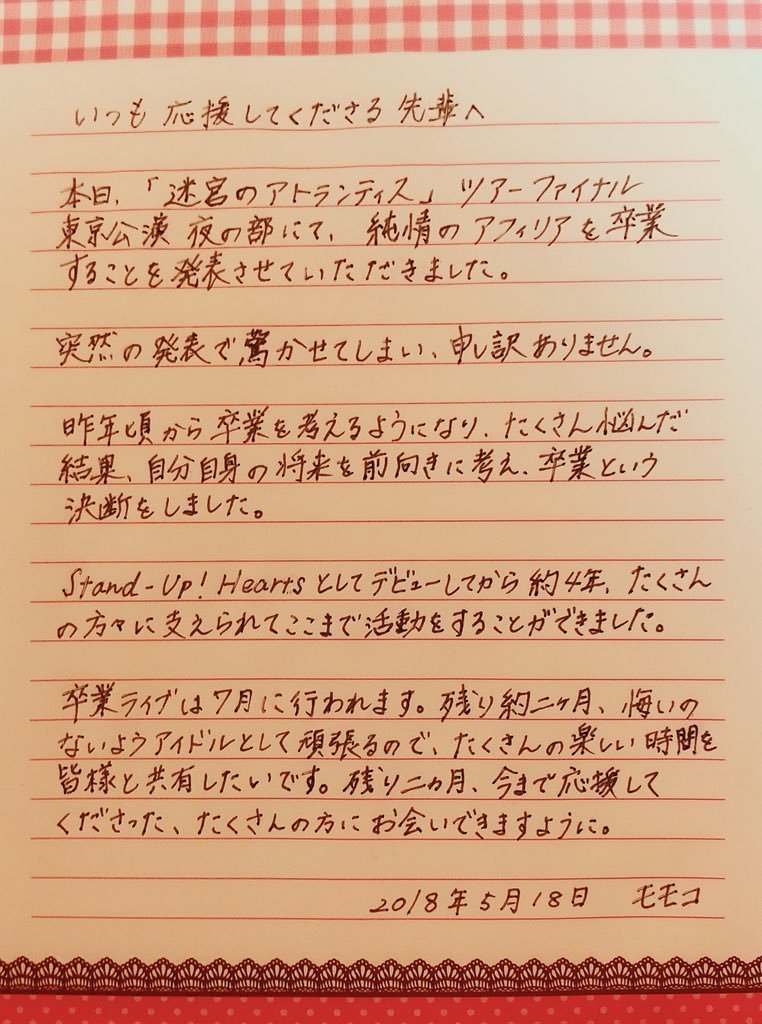 いつも応援してくださる先輩へ
本日、「迷宮のアトランティス」ツアーファイナル
東京公演 夜の部にて、純情のアフィリアを卒業
することを発表させていただきました。
突然の発表で驚かせてしまい、申し訳ありません。
昨年頃から卒業を考えるようになり、たくさん悩んだ
結果、自分自身の将来を前向きに考え、卒業という
決断をしました。
Stand-Up! Heartsとしてデビューしてから約4年、たくさん
の方々に支えられてここまで活動をすることができました。
卒業ライブは7月に行われます。残り約二ヶ月、悔いの
ないようアイドルとして頑張るので、たくさんの楽しい時間を
皆様と共有したいです。残り二カ月、今まで応援して
くださった、たくさんの方にお会いできますように。
2018年5月18日 モモコ